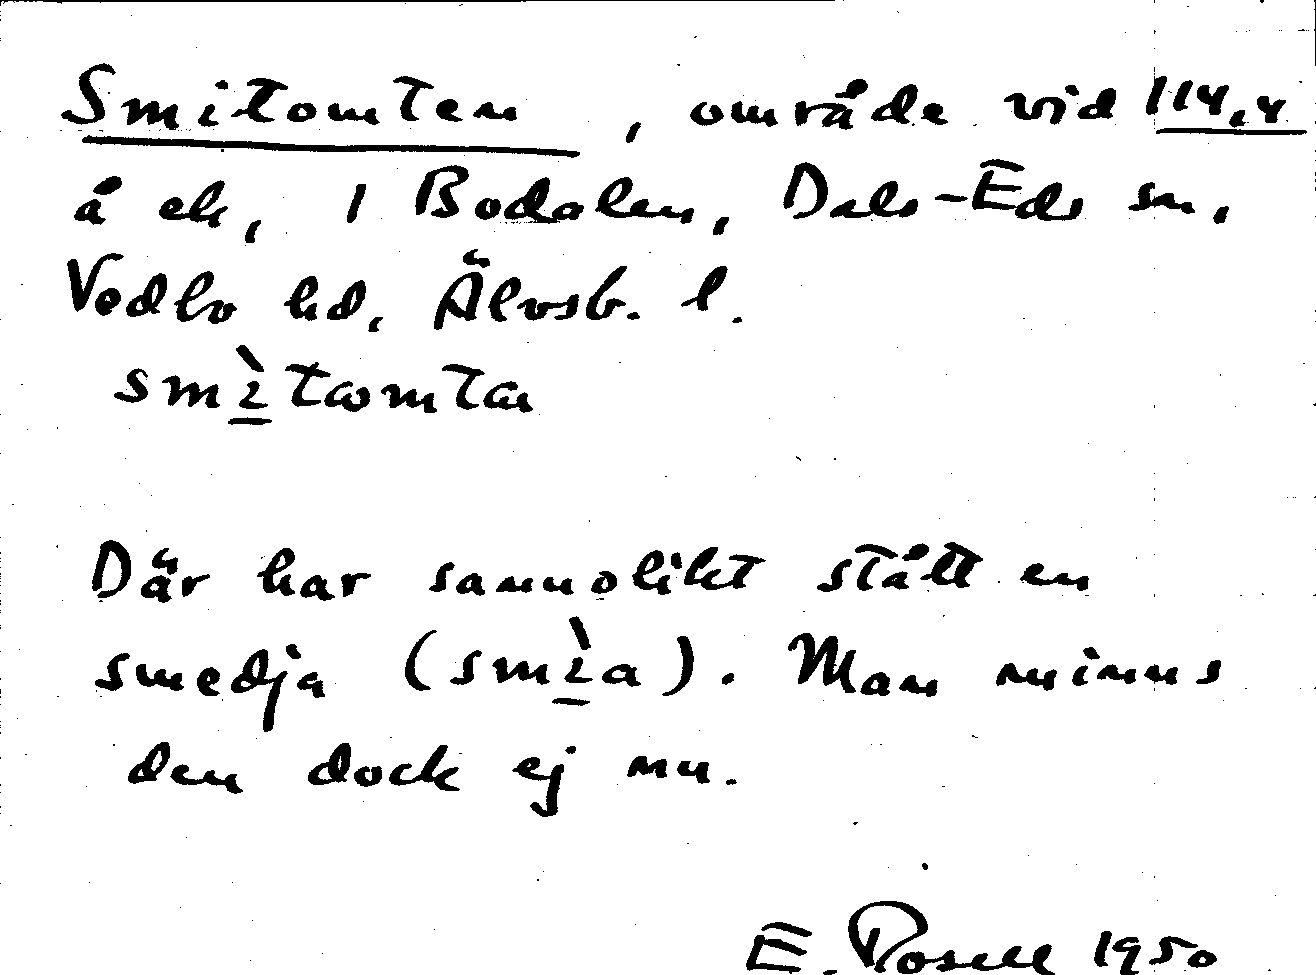 Smitomten, område vid 114,4
å ek, 1 Bodalen, Dals-Eds sn,
Vedbo hd, Älvsb. l.
smì̠tωmta
Där har sannolikt stått en
smedja (smì̠a). Man minns
den dock ej nu.
E. Rosell 1950